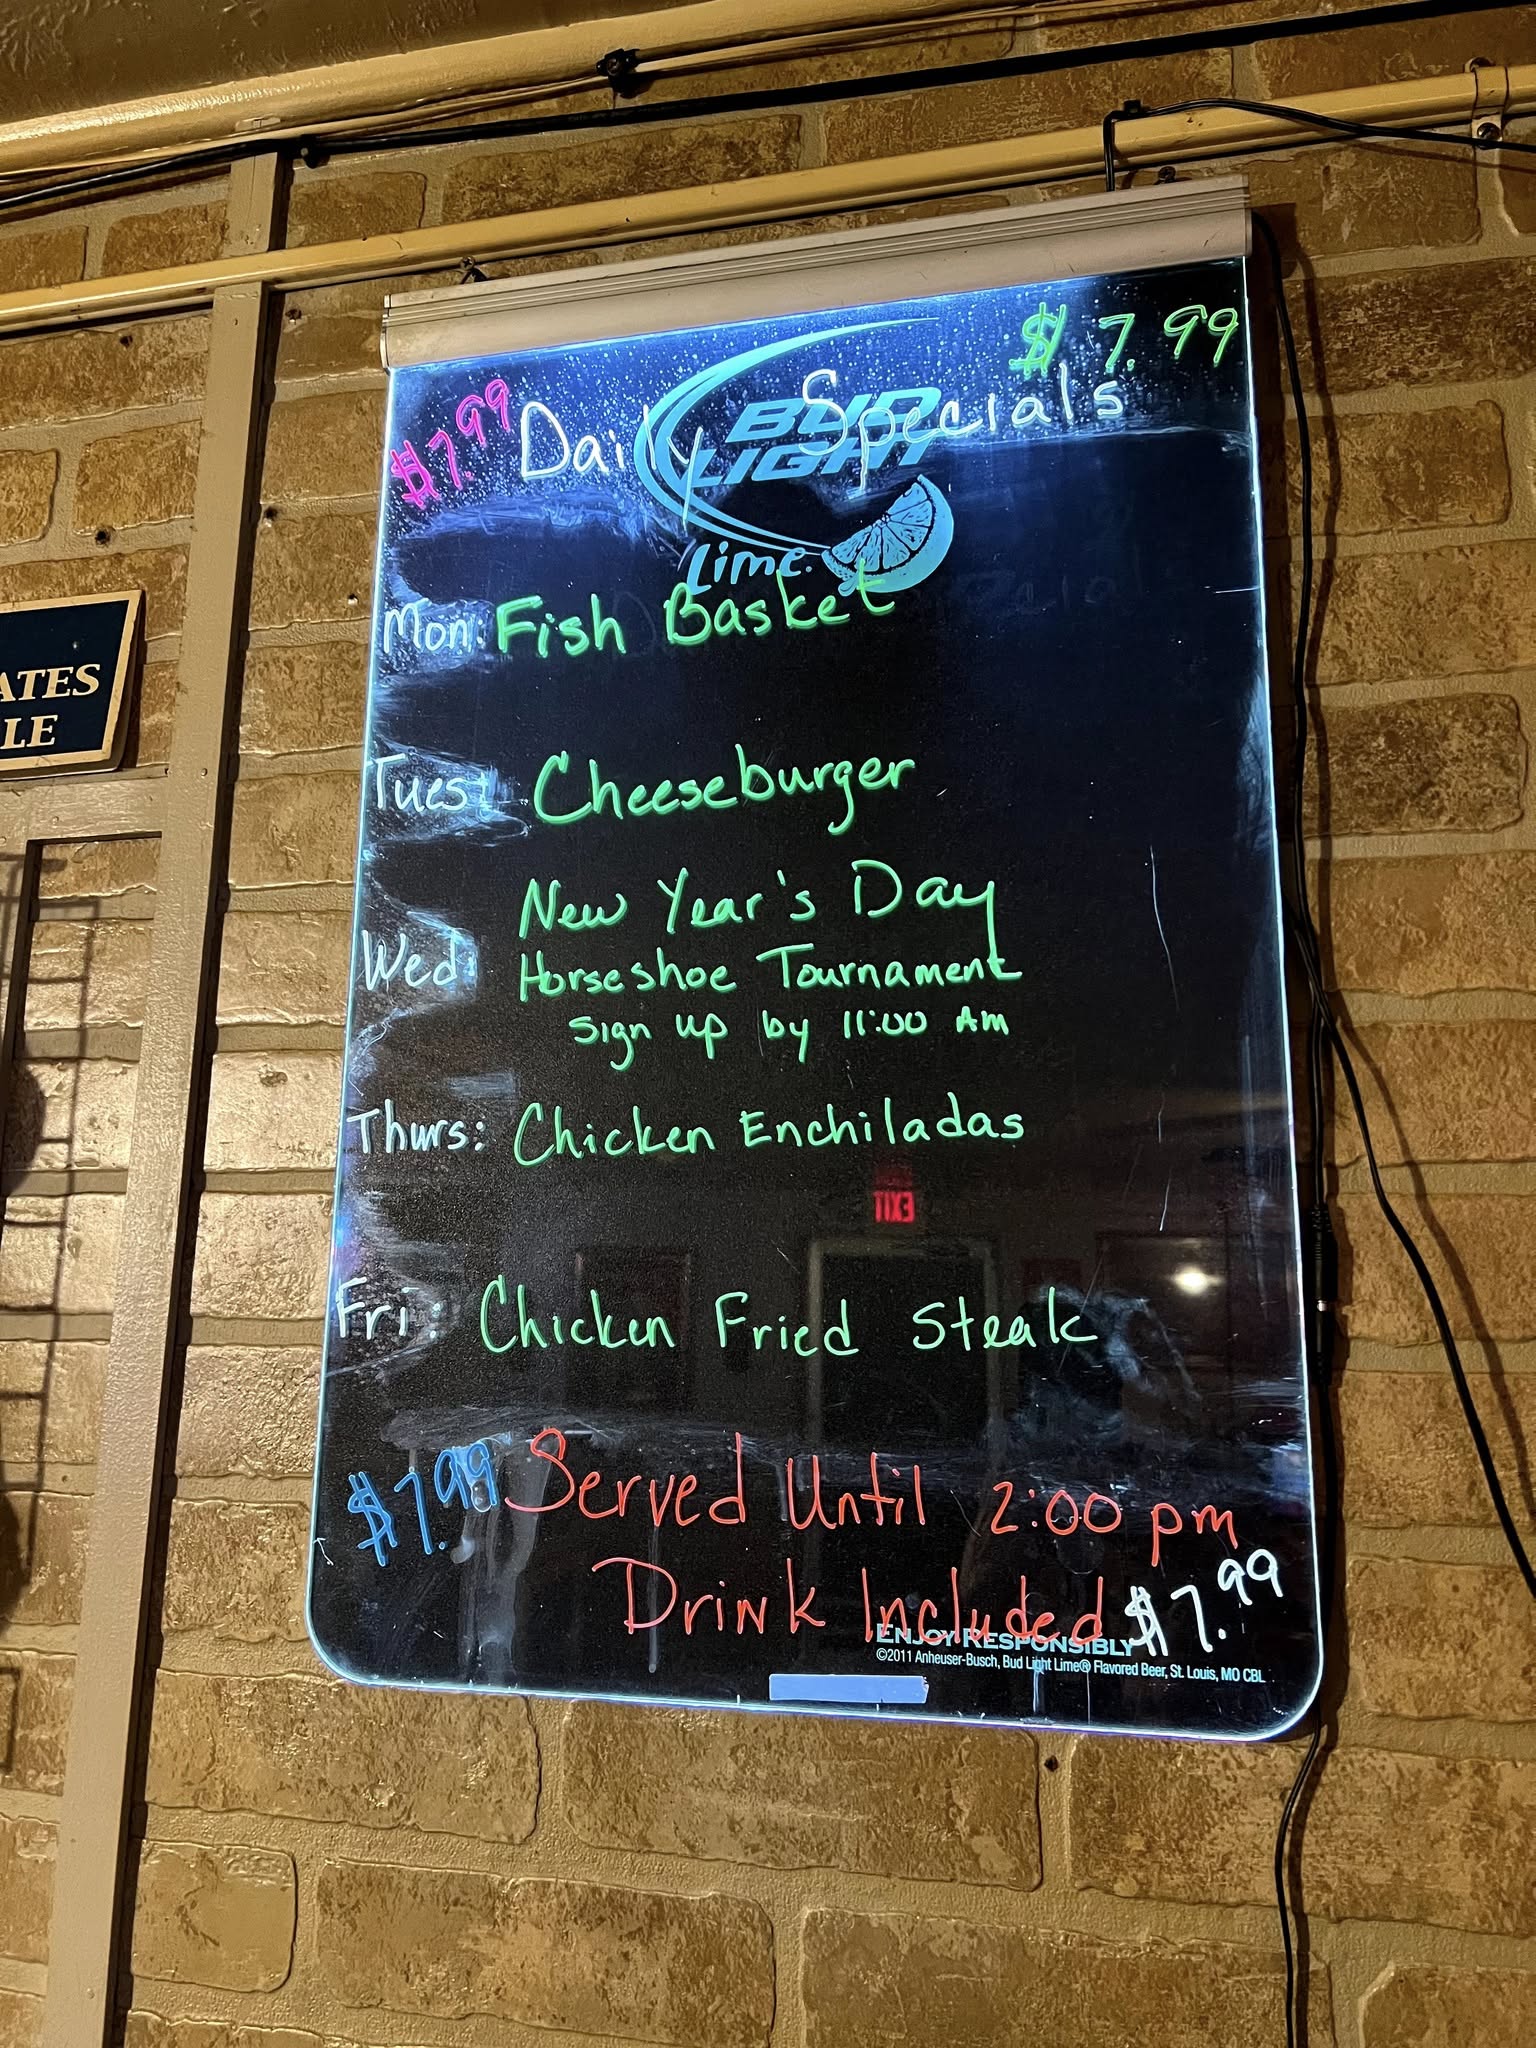 $7.99
$7.99
Daily Specials
BUD
LIGHT
Lime.
Mon: Fish Basket
Tues: Cheeseburger
Wed: New Year's Day
Horseshoe Tournament
Sign up by 11:00 AM
Thurs: Chicken Enchiladas
EXIT
Fri: Chicken Fried Steak
$7.99 Served Until 2:00 pm
Drink Included $7.99
ENJOY RESPONSIBLY
©2011 Anheuser-Busch, Bud Light Lime® Flavored Beer, St. Louis, MO CBL
ATES
LE